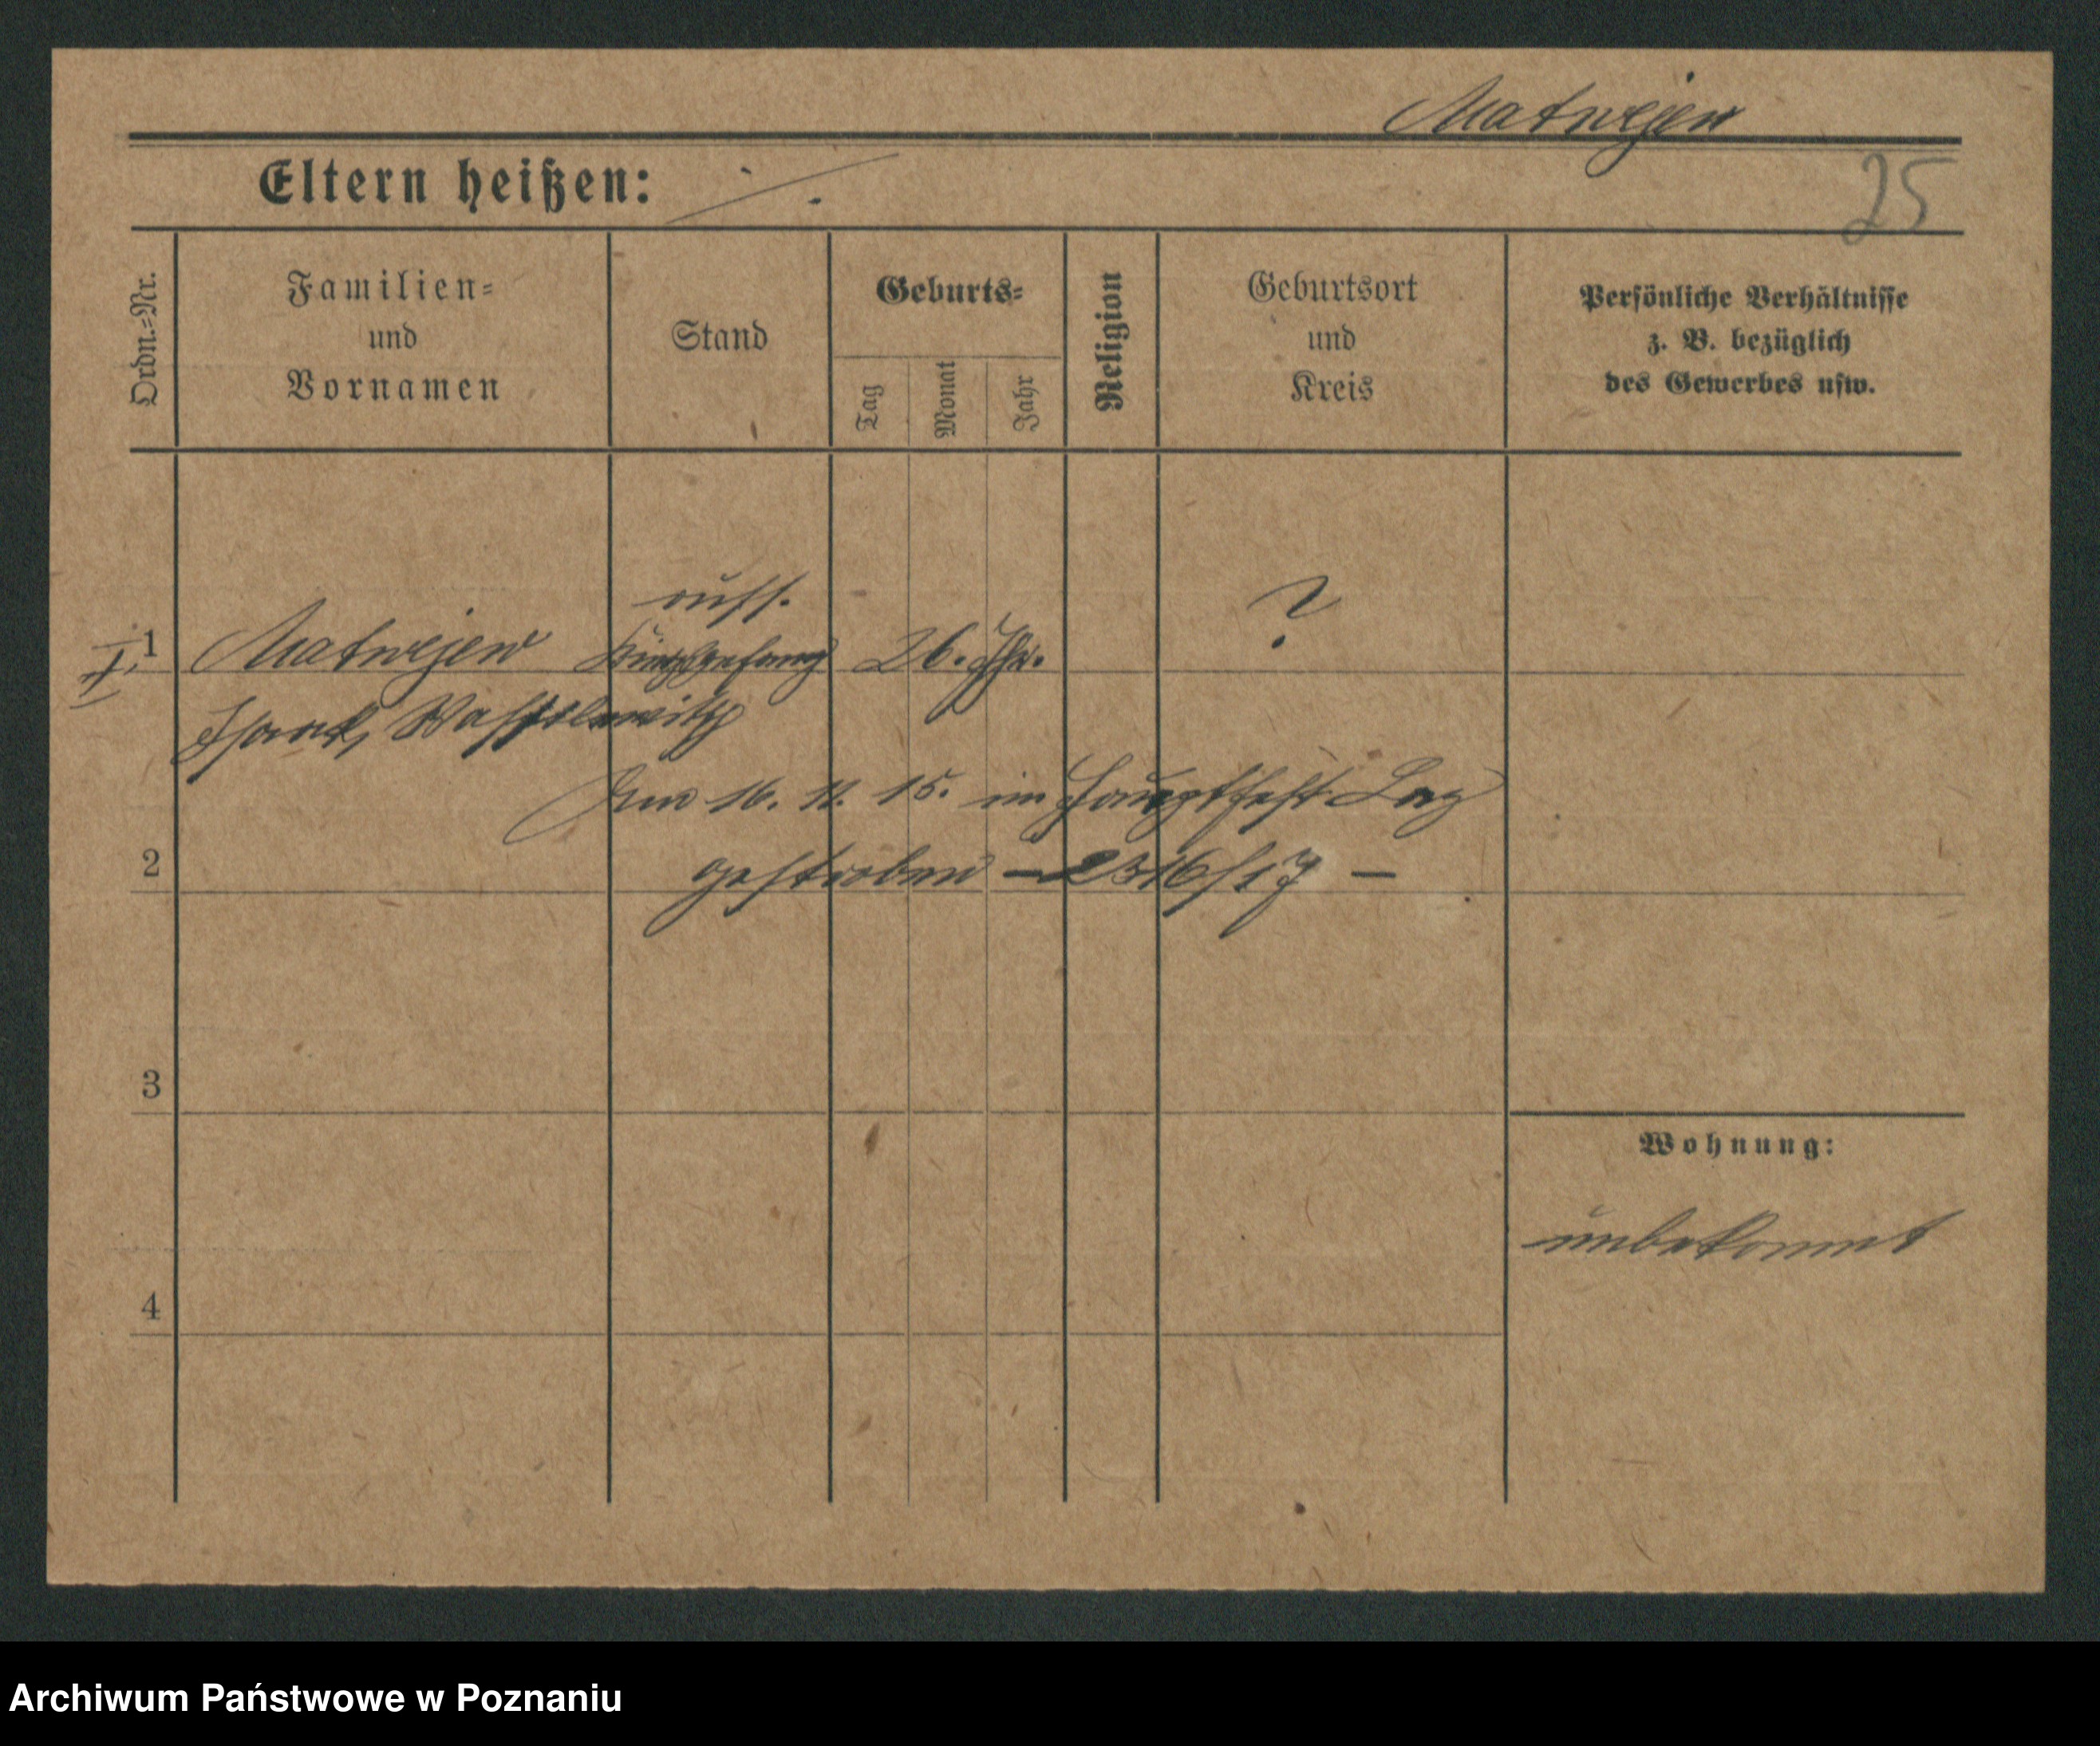 Matwejew
Eltern heißen: ./.
25
Ordn.-Nr.
Familien-
und
Vornamen
Stand
Geburts-
Tag
Monat
Jahr
Religion
Geburtsort
und
Kreis
Persönliche Verhältnisse
z. B. bezüglich
des Gewerbes usw.
russ.
1 Matwejew Kriegsgefang 26. Jhr. ?
Am 16. 11. 15. im Hauptfest. Laz
2 gestorben – 2316/17 –
3
Wohnung:
unbekannt
4
Archiwum Państwowe w Poznaniu